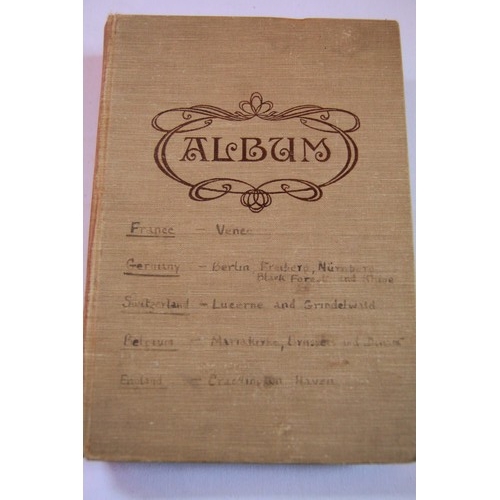 ALBUM
France - Vence
Germany - Berlin, Freiberg, Nürnberg
Black Forest and Rhine
Switzerland - Lucerne and Grindelwald
Belgium - Mariakerke, and
England - Crackington Haven